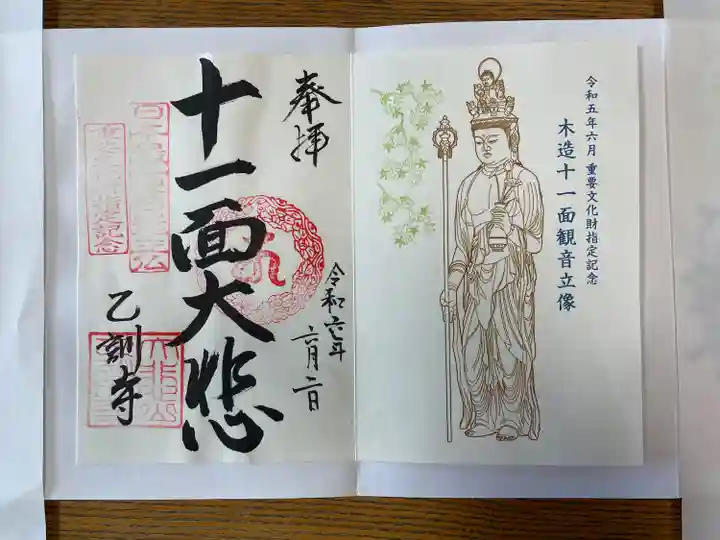 令和五年六月 重要文化財指定記念
木造十一面観音立像
奉拝
十一面大悲
令和六年
六月二日
乙訓寺
重要文化財指定記念